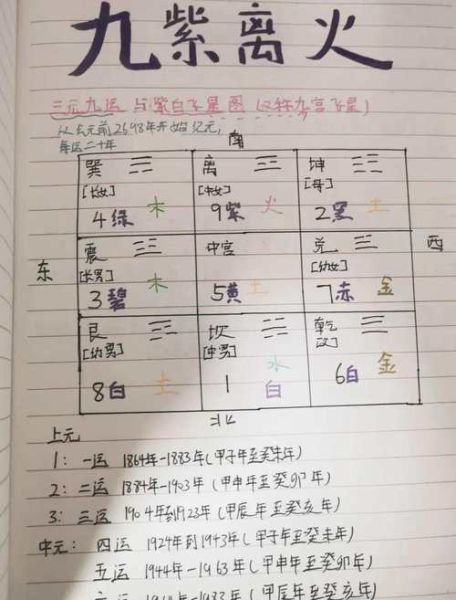 九紫离火
三元九运 与紫白飞星图 (又称九宫飞星)
从公元前2698年开始纪元,
每运二十年
南
巽 ☴ 离 ☲ 坤 ☷
[长女] [中女] [母]
4绿 木 9紫 火 2黑 土
东 震 ☳ 中宫 兑 ☱ 西
[长男] [幼女]
3碧 木 5黄 土 7赤 金
艮 ☶ 坎 ☵ 乾 ☰
[幼男] [中男] [父]
8白 土 1白 水 6白 金
北
上元
1: 一运 1864年-1883年(甲子年至癸未年)
2: 二运 1884年-1903年(甲申年至癸卯年)
3: 三运 1904年到1923年(甲辰年至癸亥年)
中元: 四运 1924年到1943年(甲子年至癸未年)
五运 1944年-1963年(甲申年至癸卯年)
六运 1964年-1983年(甲辰年至癸亥年)